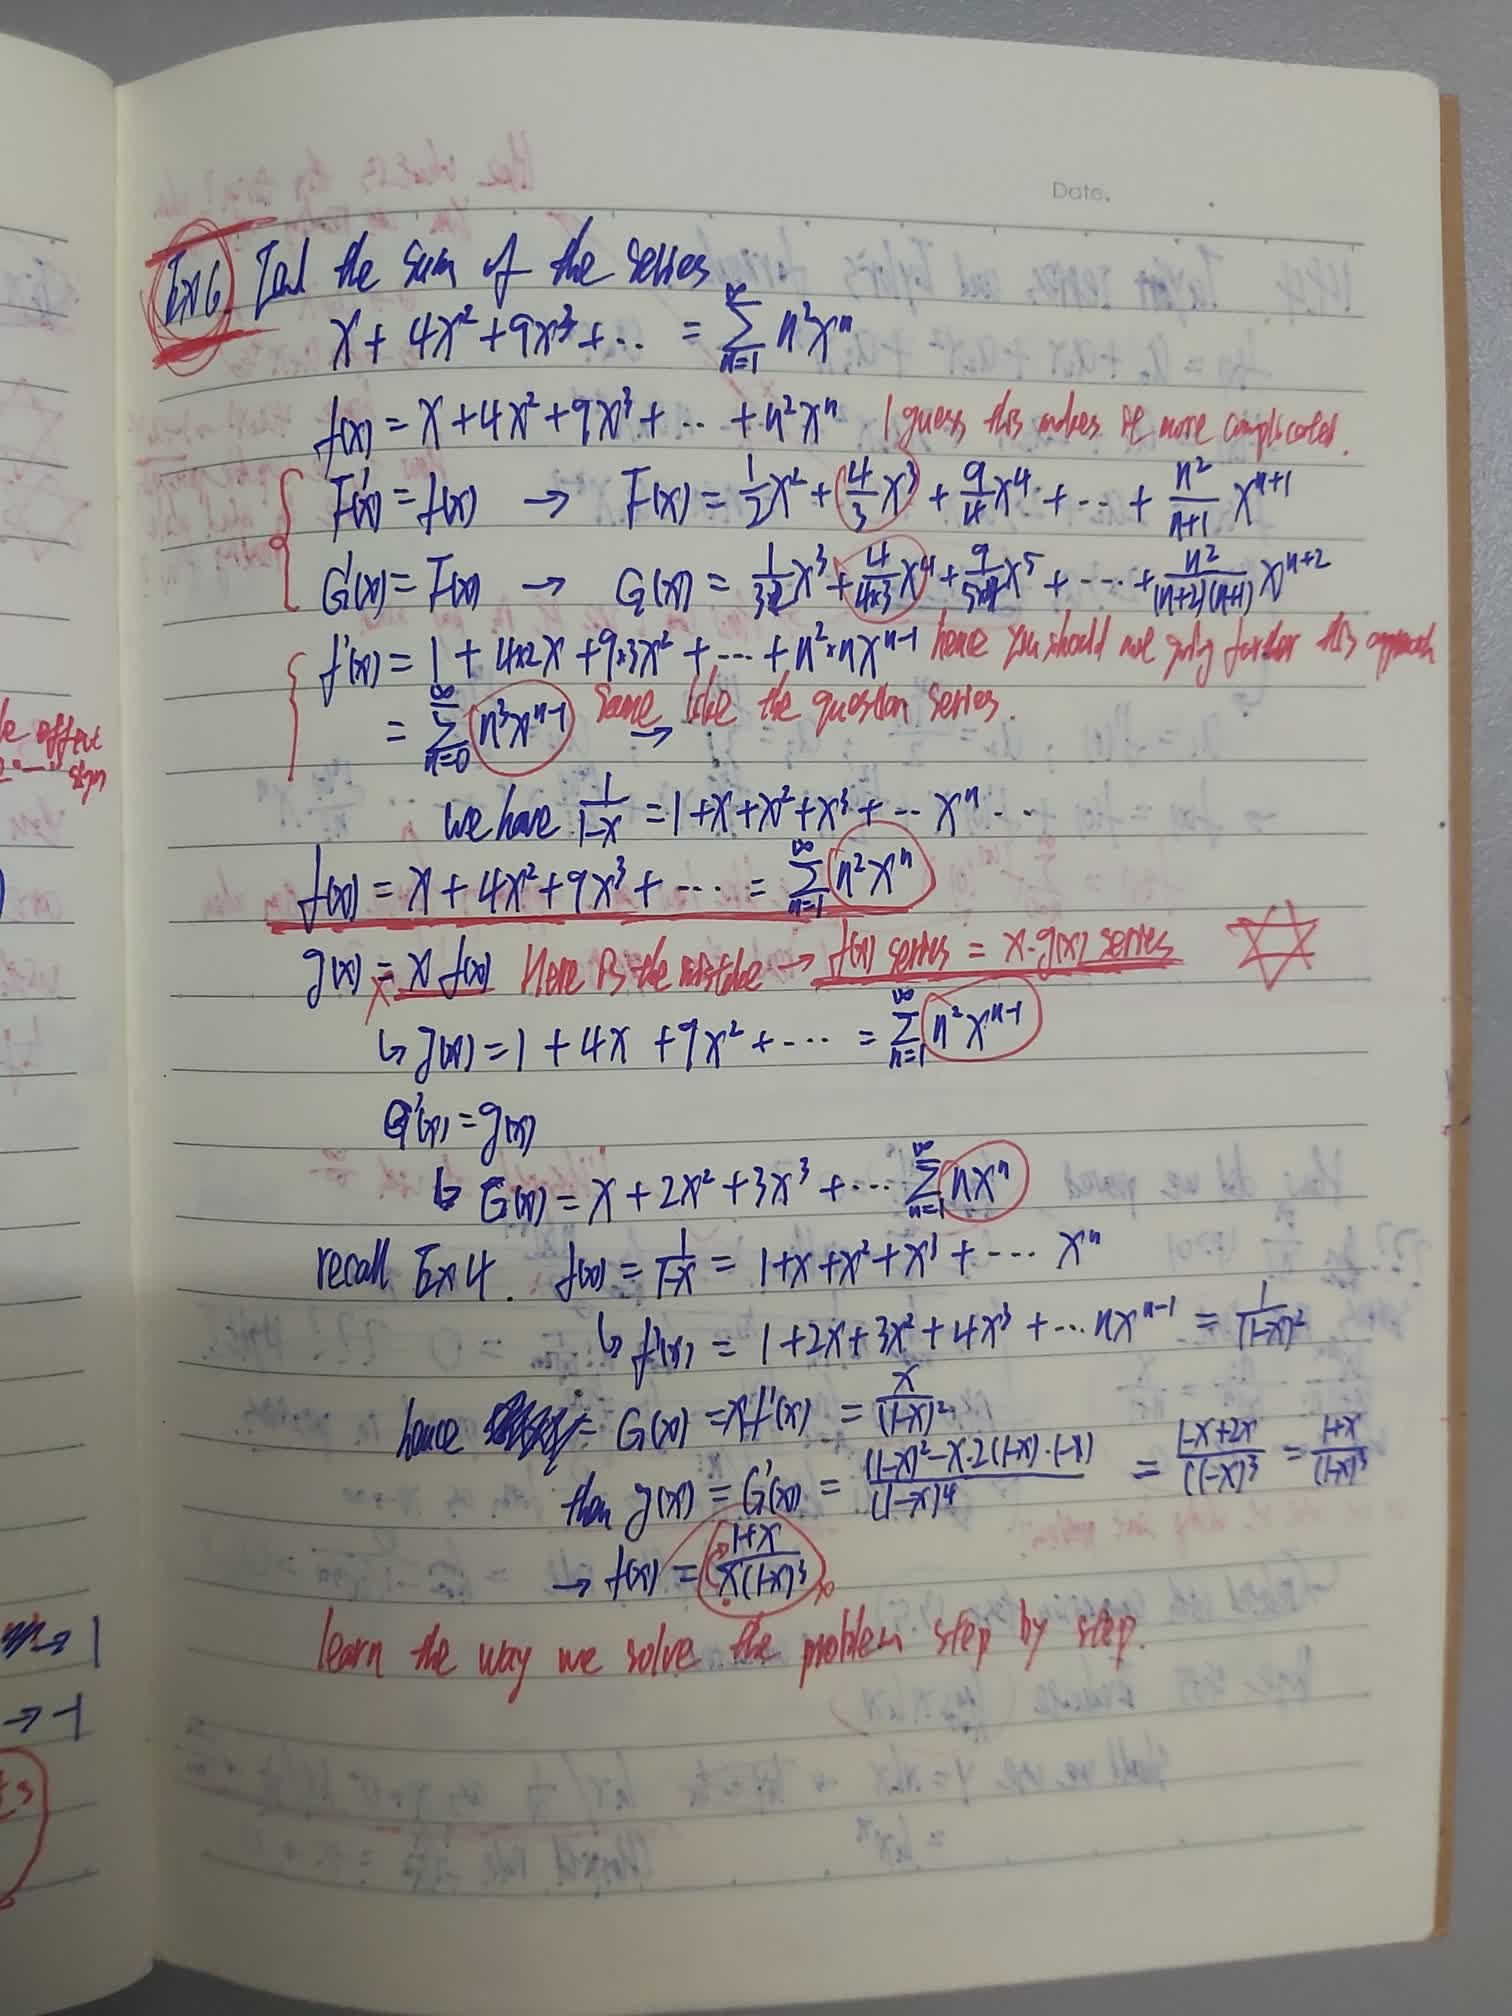 Date.
Ex 6. Find the sum of the series
x + 4x² + 9x³ + ... = ∑_{n=1}^{∞} n²xⁿ
f(x) = x + 4x² + 9x³ + ... + n²xⁿ I guess this makes it more complicated.
F'(x) = f(x) → F(x) = 1/2 x² + 4/3 x³ + 9/4 x⁴ + ... + n²/(n+1) x^{n+1}
G'(x) = F(x) → G(x) = 1/(3×2) x³ + 4/(4×3) x⁴ + 9/(5×4) x⁵ + ... + n²/((n+2)(n+1)) x^{n+2}
f'(x) = 1 + 4×2x + 9×3x² + ... + n²×nx^{n-1} hence you should not going further this approach
= ∑_{n=0}^{∞} n³x^{n-1} same like the question series.
→
we have 1/(1-x) = 1+x+x²+x³+ ... xⁿ ...
f(x) = x + 4x² + 9x³ + ... = ∑_{n=1}^{∞} n²xⁿ
g(x) = x f(x) Here is the mistake → f(x) series = x·g(x) series
↳ g(x) = 1 + 4x + 9x² + ... = ∑_{n=1}^{∞} n²x^{n-1}
G'(x) = g(x)
↳ G(x) = x + 2x² + 3x³ + ... ∑_{n=1}^{∞} nxⁿ
recall Ex 4. f(x) = 1/(1-x) = 1+x+x²+x³+ ... xⁿ
↳ f'(x) = 1+2x+3x²+4x³+...nx^{n-1} = 1/(1-x)²
hence G(x) = xf'(x) = x/(1-x)²
then g(x) = G'(x) = ((1-x)² - x·2(1-x)·(-1))/(1-x)⁴ = (1-x+2x)/(1-x)³ = (1+x)/(1-x)³
→ f(x) = (1+x)/(x(1-x)³)
learn the way we solve the problem step by step.